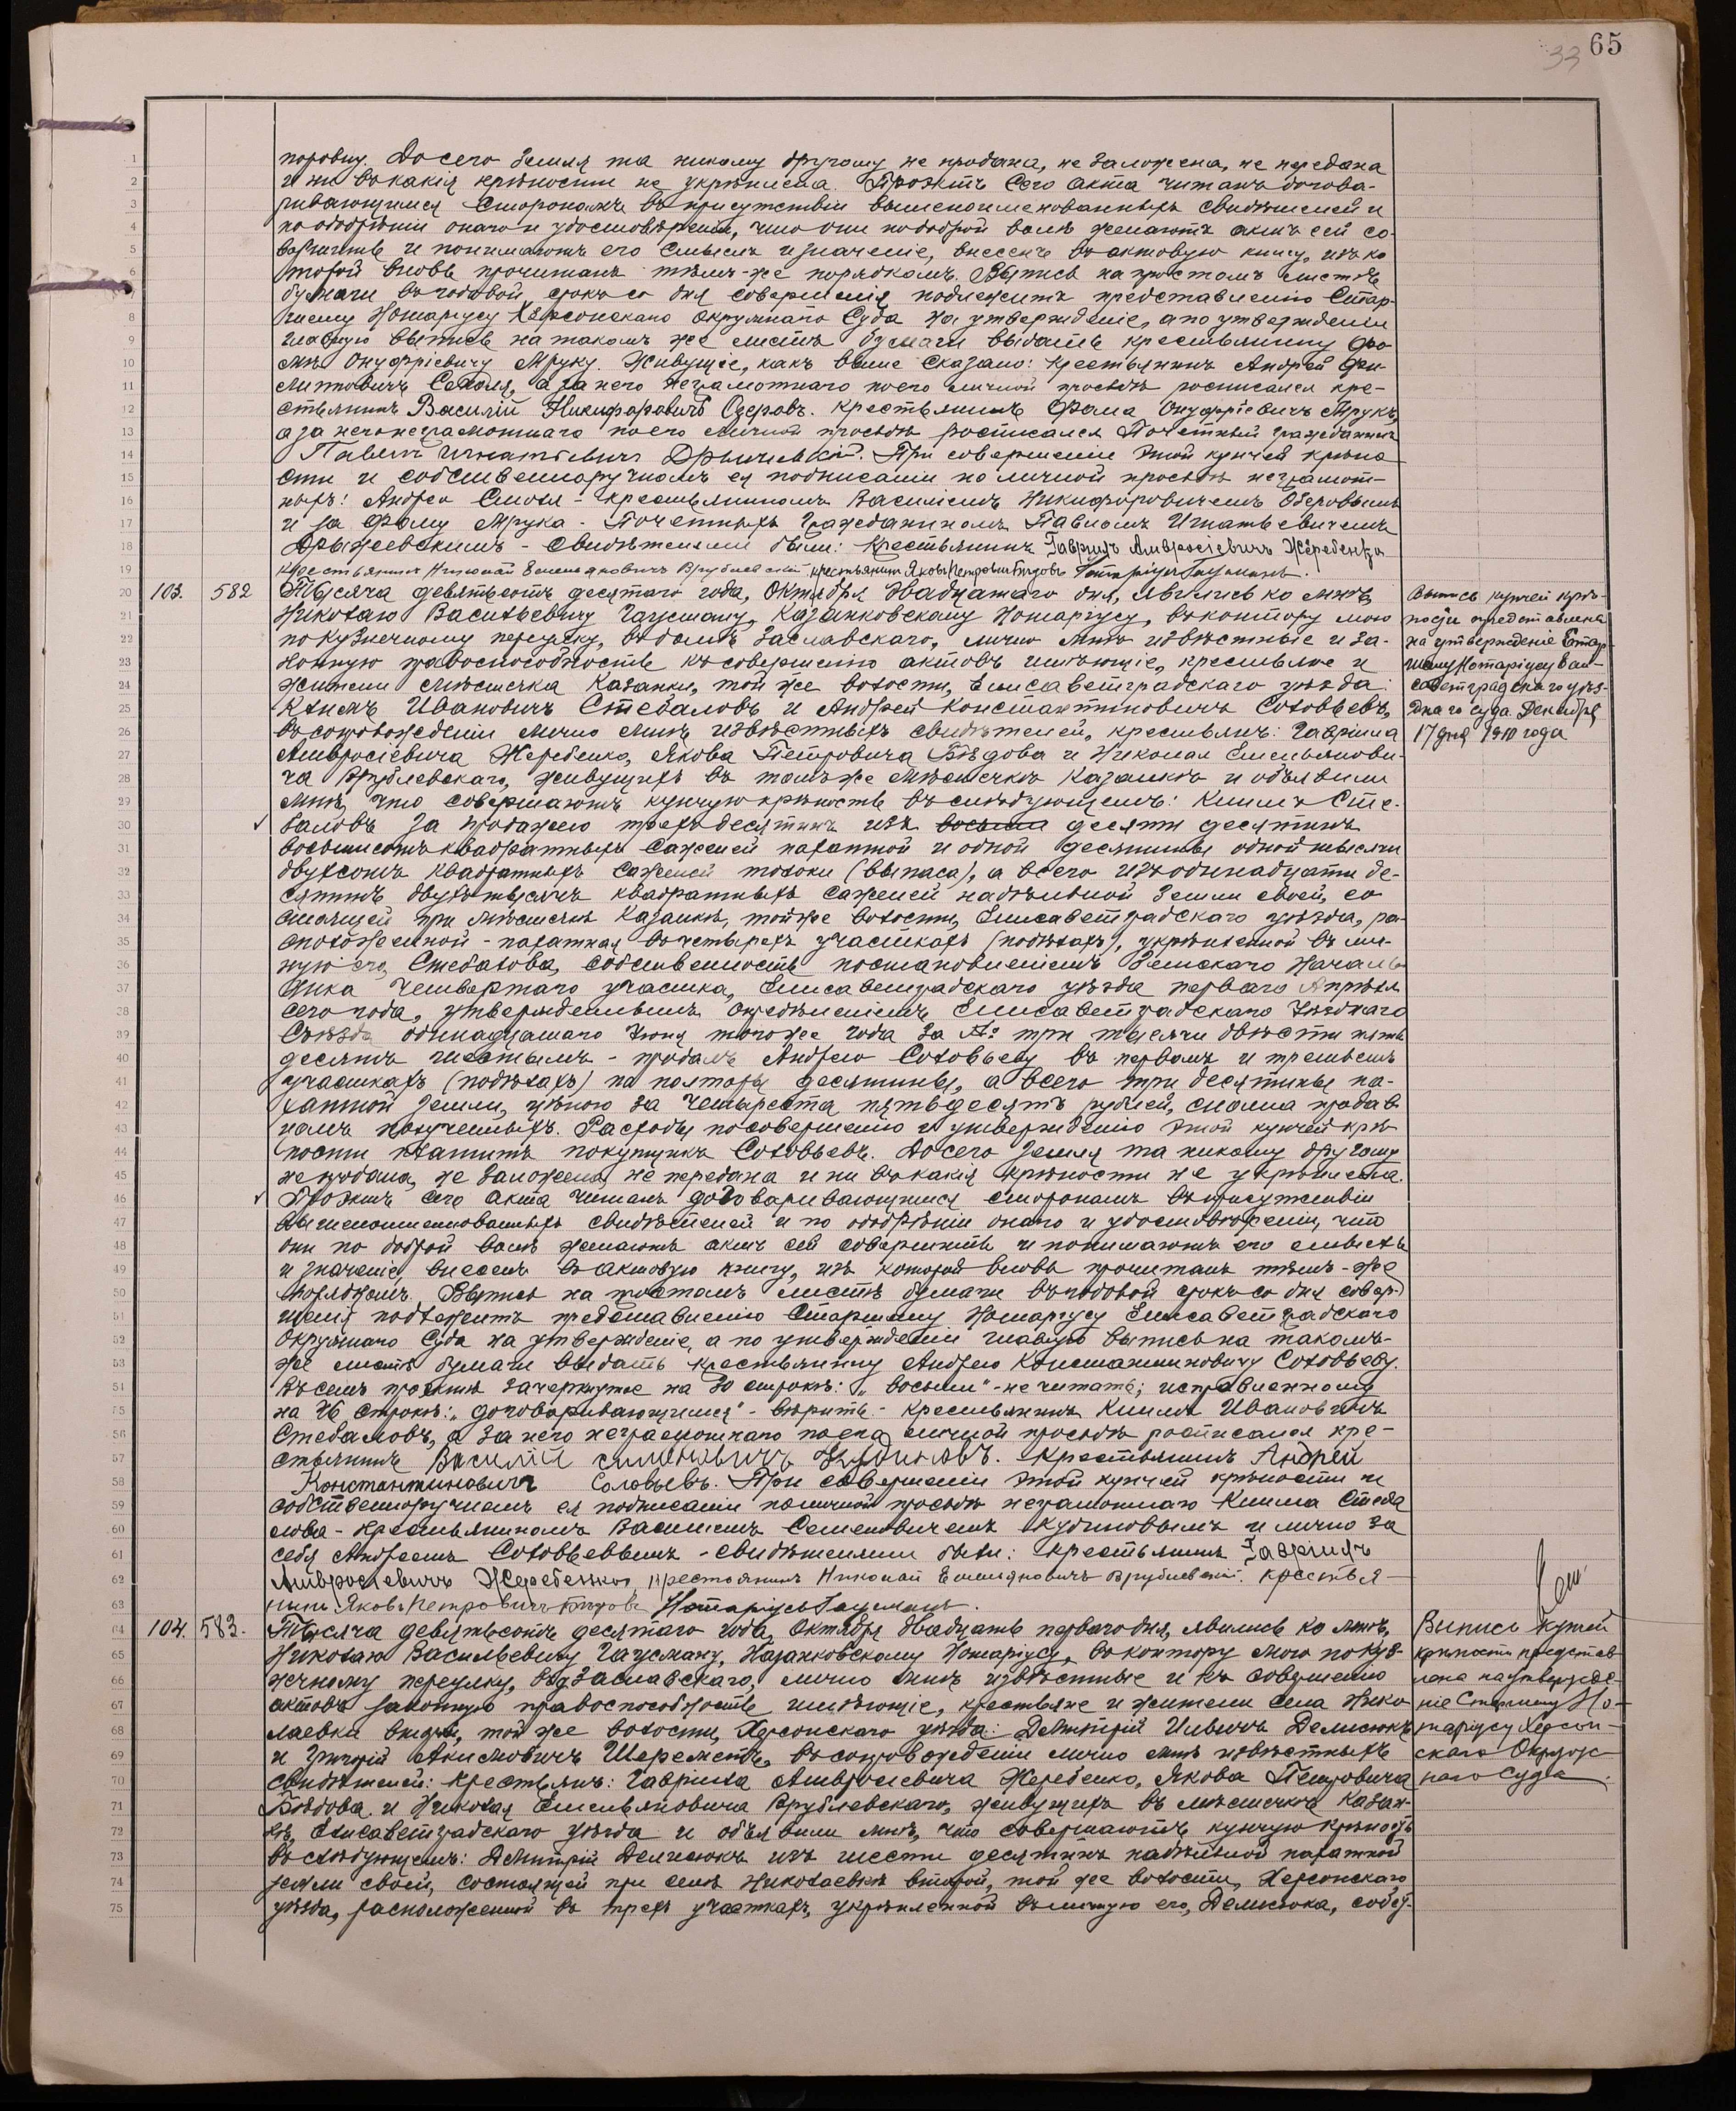 33 65
поровну. До сего земля та никому другому не продана, не заложена, не передана
и ни въ какія крѣпости не укрѣплена. Проэктъ сего акта читанъ догова-
ривающимся сторонамъ въ присутствіи вышепоименованныхъ свидѣтелей и
по одобрѣніи онаго и удостовѣреніи, что они по доброй волѣ желаютъ актъ сей со-
вершить и понимаютъ его смыслъ и значеніе, внесенъ въ актовую книгу, изъ ко
торой вновь прочитанъ тѣмъ-же порядкомъ. Выпись на простомъ листѣ
бумаги въ годовой срокъ со дня совершенія подлежитъ представленію Стар-
шему Нотаріусу Херсонскаго Окружнаго Суда на утвержденіе, а по утвержденіи
главную выпись на такомъ же листѣ бумаги выдать крестьянину Фо
мѣ Онуфріевичу Мруку. Живущіе, какъ выше сказано: Крестьянинъ Андрей Фи-
липповичъ а за него неграмотнаго по его личной просьбѣ росписался кре-
стьянинъ Василій Никифоровичъ Озеровъ. Крестьянинъ Фома Онуфріевичъ Мрукъ,
а за него неграмотнаго по его личной просьбѣ росписался Почетный гражданинъ
Павелъ Игнатьевичъ При совершеніи этой купчей крѣпо
сти и собственноручномъ ея подписаніи по личной просьбѣ неграмот-
ныхъ: Андрея - крестьяниномъ Василіемъ Никифоровичемъ Озеровымъ
и за Фому Мрука - Почетныхъ Гражданиномъ Павломъ Игнатьевичемъ
- свидѣтелями были: Крестьянинъ Гавріилъ Амвросіевичъ Жеребенко
крестьянинъ Николай Емельяновичъ Врублевскій крестьянинъ Яковъ Петровичъ Бѣдовъ Нотаріусъ Гаусманъ.
103. 582 Тысяча девятьсотъ десятаго года, Октября двадцатаго дня, явились ко мнѣ,
Николаю Васильевичу Гаусману, Казанковскому Нотаріусу, въ контору мою
по Кузнечному переулку, въ домѣ Заславскаго, лично мнѣ извѣстные и за-
конную правоспособность къ совершенію актовъ имѣющіе, крестьяне и
жители мѣстечка Казанки, той же волости, Елисаветградскаго уѣзда:
Климъ Ивановичъ Стебаловъ и Андрей Константиновичъ Соловьевъ,
въ сопровожденіи лично мнѣ извѣстныхъ свидѣтелей, крестьянъ: Гавріила
Амвросіевича Жеребенко, Якова Петровича Бѣдова и Николая Емельянови-
ча Врублевскаго, живущихъ въ томъ же мѣстечкѣ Казанкѣ и объявили
мнѣ, что совершаютъ купчую крѣпость въ слѣдующемъ: Климъ Сте-
баловъ за продажею трехъ десятинъ изъ восьми десяти десятинъ
восьмисотъ квадратныхъ саженей пахатной и одной десятины одной тысячи
двухсотъ квадратныхъ саженей толоки (выпаса), а всего изъ одинадцати де-
сятинъ двухъ тысячъ квадратныхъ саженей надѣльной земли своей, со
стоящей при мѣстечкѣ Казанкѣ, той же волости, Елисаветградскаго уѣзда, ра-
сположенной - пахатная въ четырехъ участкахъ (подѣлахъ), укрѣпленной въ лич-
ную его, Стебалова, собственность постановленіемъ Земскаго Началь
ника Четвертаго участка, Елисаветградскаго уѣзда перваго Апрѣля
сего года, утвержденнымъ опредѣленіемъ Елисаветградскаго Уѣзднаго
Съѣзда одинадцатаго Іюня того же года за № три тысячи двѣсти пять
десятъ шестымъ - продалъ Андрею Соловьеву въ первомъ и третьемъ
участкахъ (подѣлахъ) по полторы десятины, а всего три десятины па-
хатной земли, цѣною за четыреста пятьдесятъ рублей, сполна продав
цомъ полученныхъ. Расходы по совершенію и утвержденію этой купчей крѣ
пости платитъ покупщикъ Соловьевъ. До сего земля та никому другому
не продана, не заложена, не передана и ни въ какія крѣпости не укрѣплена.
Проэктъ сего акта читанъ договаривающимся сторонамъ въ присутствіи
вышепоименованныхъ свидѣтелей и по одобрѣніи онаго и удостовѣреніи, что
они по доброй волѣ желаютъ актъ сей совершить и понимаютъ его смыслъ
и значеніе, внесенъ въ актовую книгу, изъ которой вновь прочитанъ тѣмъ-же
порядкомъ. Выпись на простомъ листѣ бумаги въ годовой срокъ со дня совер-
шенія подлежитъ представленію Старшему Нотаріусу Елисаветградскаго
Окружнаго Суда на утвержденіе, а по утвержденіи главную выпись на такомъ-
же листѣ бумаги выдать крестьянину Андрею Константиновичу Соловьеву.
Въ семъ проэктѣ зачеркнутое на 30 строкѣ: „восьми" - не читать; исправленному
на 46 строкѣ: „договаривающимся" - вѣрить. - Крестьянинъ Климъ Ивановичъ
Стебаловъ, а за него неграмотнаго по его личной просьбѣ росписался кре-
стьянинъ Василій Сименовичъ Кудиновъ. Крестьянинъ Андрей
Константиновичъ Соловьевъ. При совершеніи этой купчей крѣпости и
собственноручномъ ея подписаніи по личной просьбѣ неграмотнаго Клима Стеба
лова - крестьяниномъ Василіемъ Семеновичемъ Кудиновымъ и лично за
себя Андреемъ Соловьевымъ - свидѣтелями были: крестьянинъ Гавріилъ
Амвросіевичъ Жеребенко, крестьянинъ Николай Емельяновичъ Врублевскій. крестья-
нинъ Яковъ Петровичъ Бѣдовъ Нотаріусъ Гаусманъ.
Выпись купчей крѣ-
пости представлена
на утвержденіе Стар-
шему Нотаріусу Ели-
саветградскаго
Суда Декабря
17 дня 1910 года
104. 583. Тысяча девятьсотъ десятаго года, Октября двадцать перваго дня, явились ко мнѣ,
Николаю Васильевичу Гаусману, Казанковскому Нотаріусу, въ контору мою по Куз-
нечному переулку, въ д. Заславскаго, лично мнѣ извѣстные и къ совершенію
актовъ законную правоспособность имѣющіе, крестьяне и жители села Нико
лаевки второй, той же волости, Херсонскаго уѣзда: Дмитрій Ильичъ Демисюкъ
и Григорій Акимовичъ Шереметъ, въ сопровожденіи лично мнѣ извѣстныхъ
свидѣтелей: крестьянъ: Гавріила Амвросіевича Жеребенко, Якова Петровича
Бѣдова и Николая Емельяновича Врублевскаго, живущихъ въ мѣстечкѣ Казан-
кѣ, Елисаветградскаго уѣзда и объявили мнѣ, что совершаютъ купчую крѣпость
въ слѣдующемъ: Дмитрій Демисюкъ изъ шести десятинъ надѣльной пахатной
земли своей, состоящей при селѣ Николаевкѣ второй, той же волости, Херсонскаго
уѣзда, расположенной въ трехъ участкахъ, укрѣпленной въ личную его, Демисюка, собст-
Выпись купчей
крѣпости представ-
лена на утвержде-
ніе Старшему Но-
таріусу Херсон-
скаго Окруж-
наго Суда.